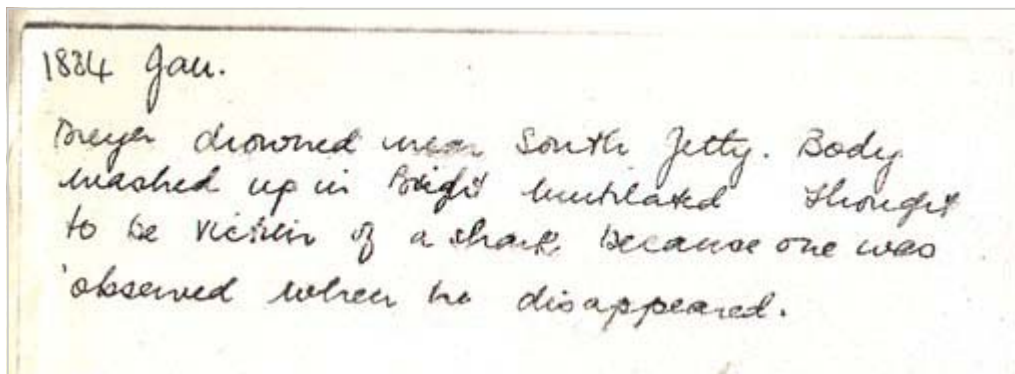 1884 Jan.
Dreyer drowned near South Jetty. Body
washed up in Bight mutilated thought
to be victim of a shark because one was
observed when he disappeared.